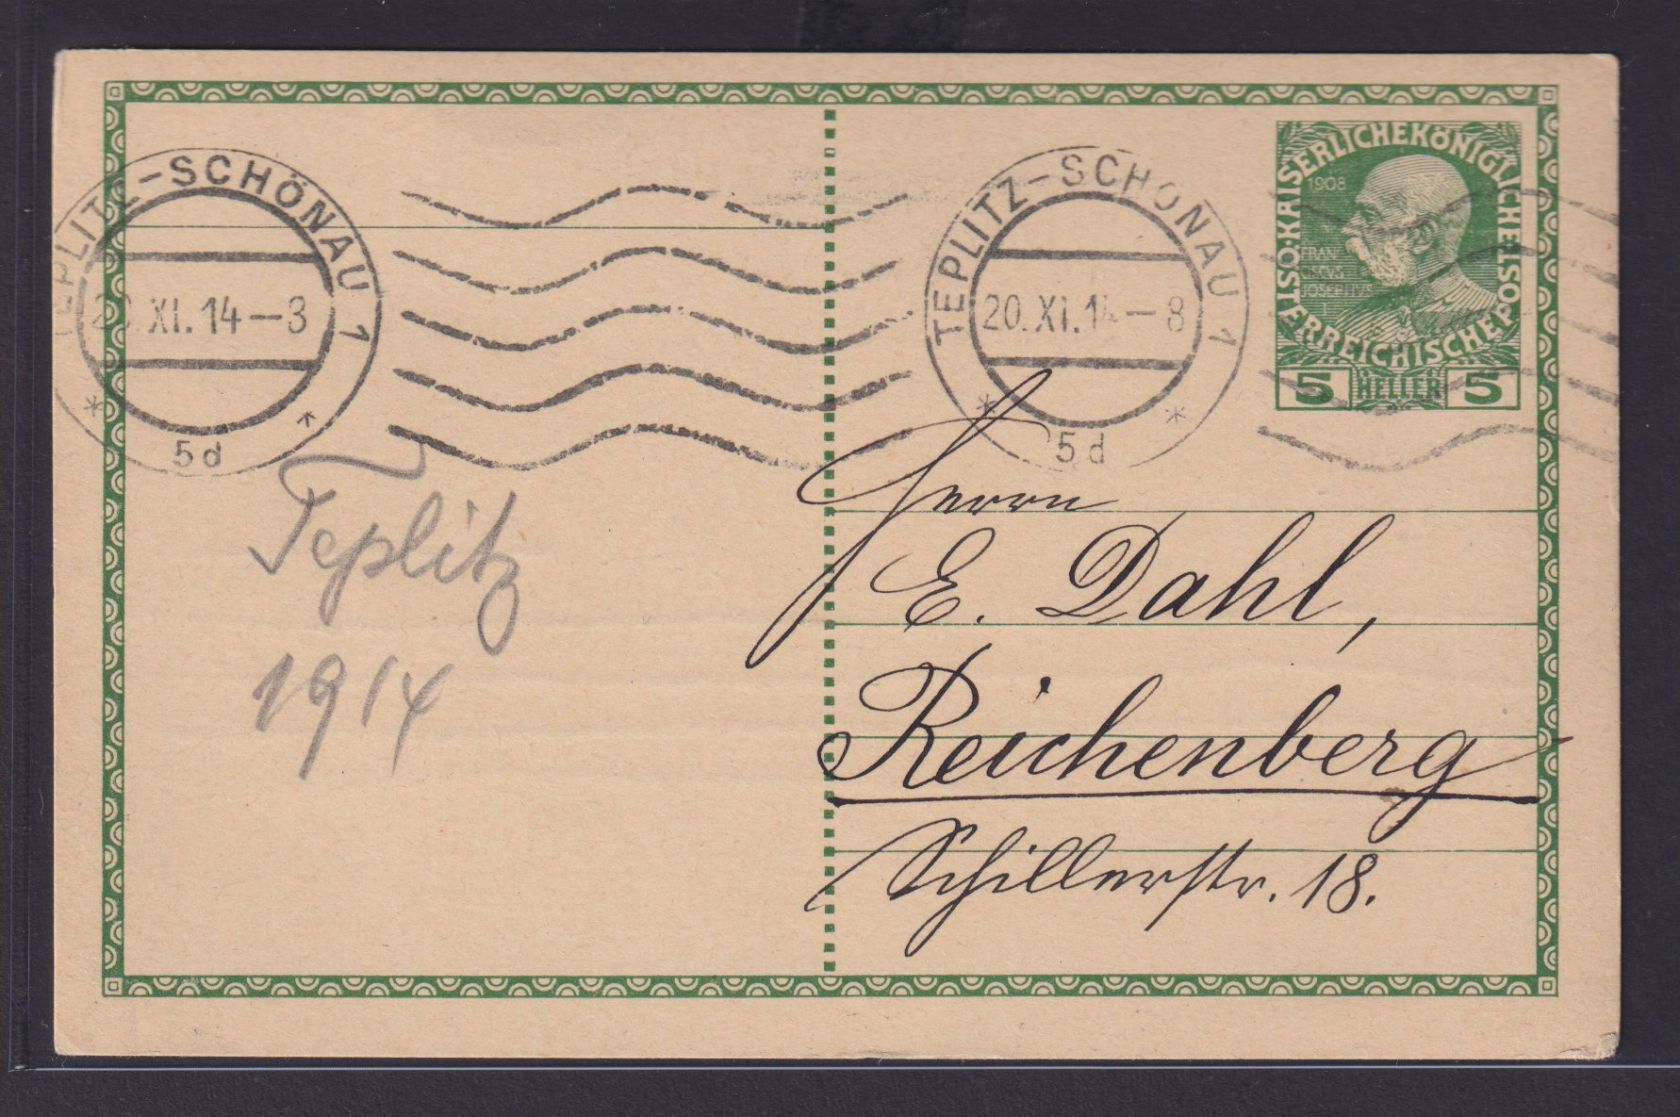 TEPLITZ-SCHÖNAU 1
20.XI.14-3
* *
5d
TEPLITZ-SCHÖNAU 1
20.XI.14-8
* *
5d
KAISERLICHEKÖNIGLICHE
ÖSTERREICHISCHEPOST
1908
FRAN
CISCVS
JOSEPHVS
5 HELLER 5
Teplitz
1914
Herrn
E. Dahl,
Reichenberg
Schillerstr. 18.